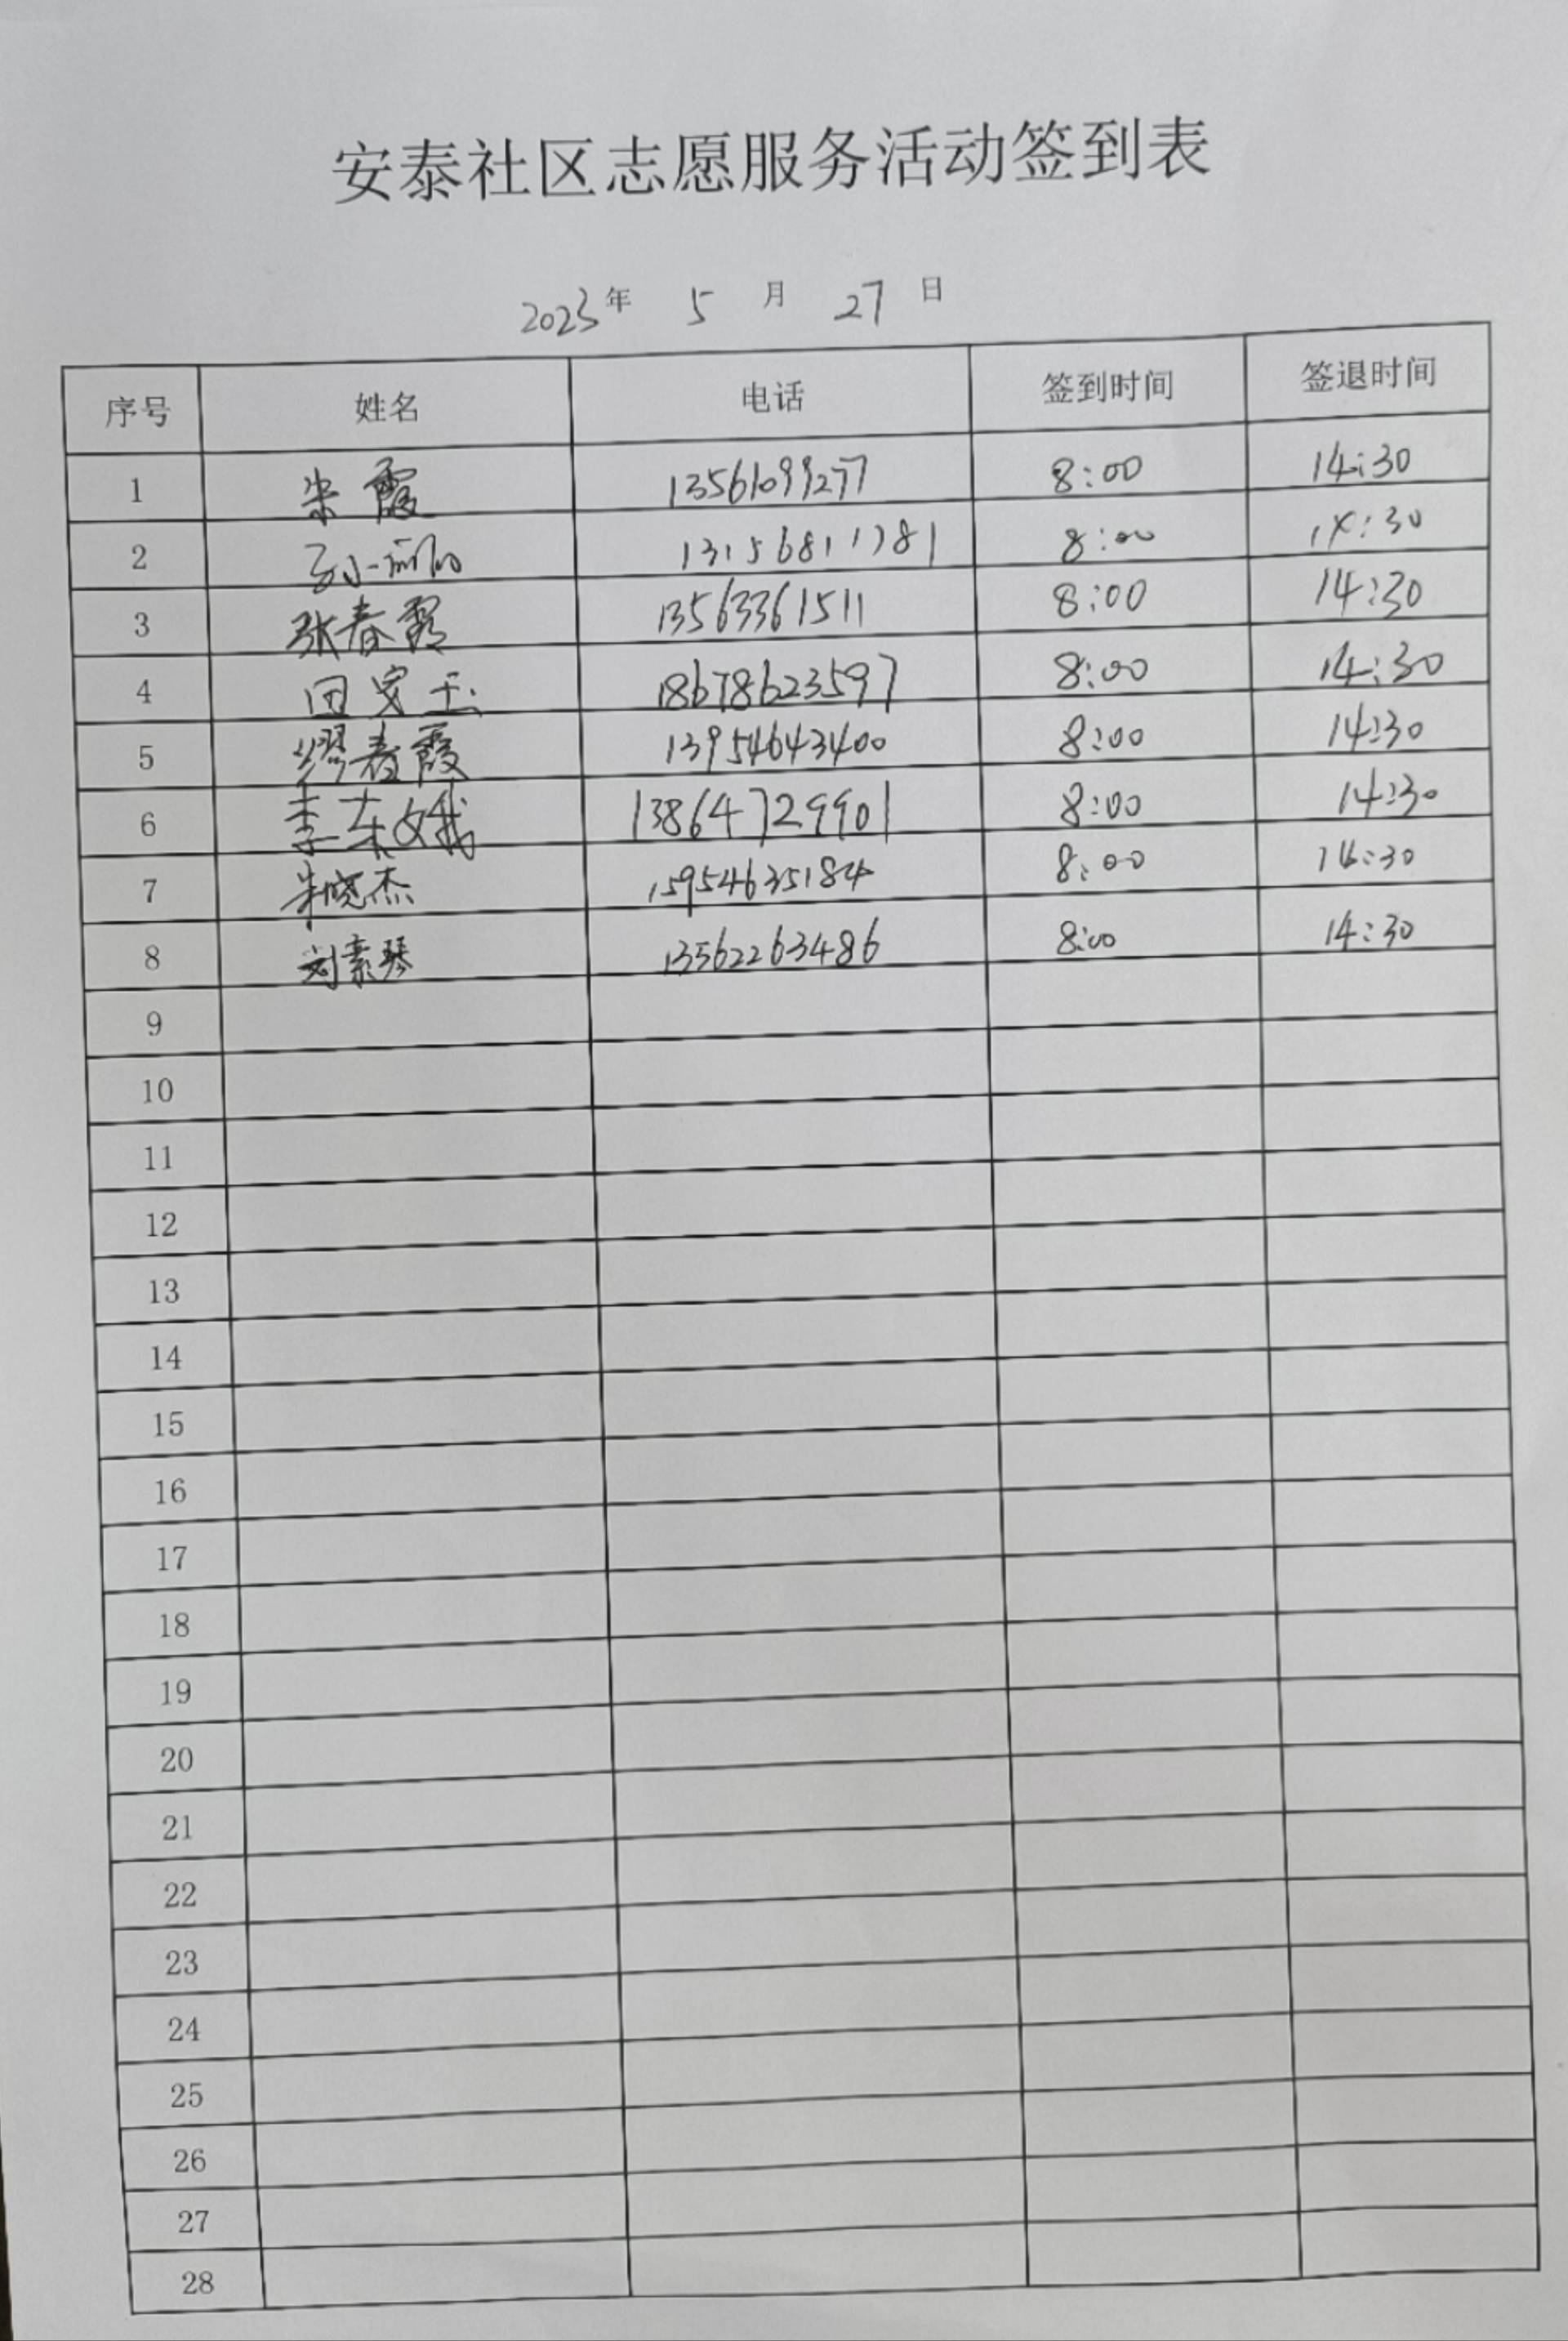 安泰社区志愿服务活动签到表
2023年 5 月 27 日
序号 姓名 电话 签到时间 签退时间
1 朱霞 13561099277 8:00 14:30
2 13156811781 8:00 14:30
3 张春霞 13563361511 8:00 14:30
4 田宝玉 18678623597 8:00 14:30
5 缪春霞 13954643400 8:00 14:30
6 李东娥 13864729901 8:00 14:30
7 朱晓杰 15954635184 8:00 14:30
8 刘素琴 13562263486 8:00 14:30
9
10
11
12
13
14
15
16
17
18
19
20
21
22
23
24
25
26
27
28